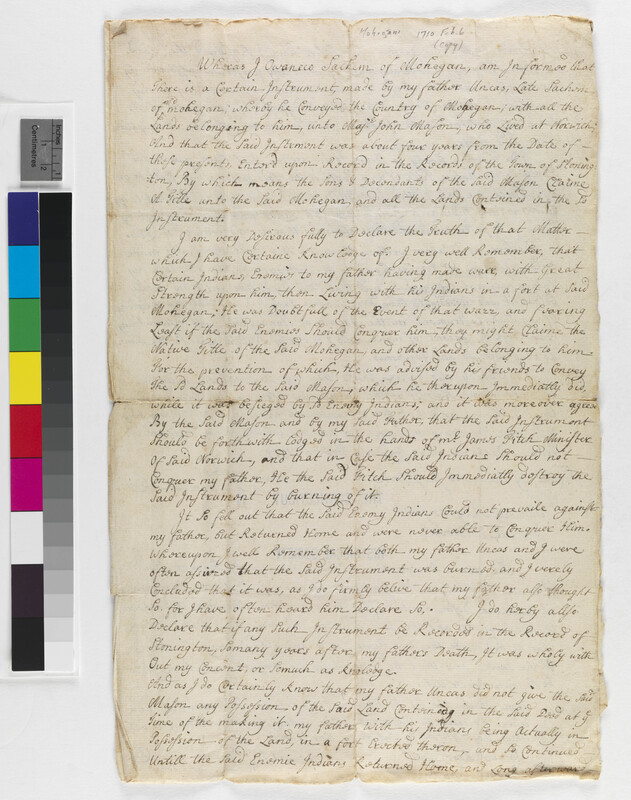 Mohegan 1710 Feb. 6
(Copy)
Whereas I Owaneco Sachem of Mohegan, am Informed that
there is a Certain Instrument, made by my father Uncas, Late Sachem
of mohegan, whereby he Conveyed the Country of Mohegan, with all the
Lands belonging to him, unto Majr John Mason, who Lived at Norwich,
And that the Said Instrment was about four years from the Date of
these presents, Enterd upon Record in the Records of the Town of Stoning
ton, By which means the Sons & Decendants of the Said Mason Claime
A Title unto the Said Mohegan, and all the Lands Contained in the Sd
Instrument.
I am very Desirous fully to Declare the Truth of that Matter
which I have Certaine Knowledge of: I very well Remember, that
Certain Indians, Enemies to my father having made warr, with Great
Strength upon him, then Living with his Indians in a fort at Said
Mohegan; He was Doubtfull of the Event of that warr, and fearing
Least if the Said Enemies Should Conquer him, they might Claime the
Native Title of the Said Mohegan, and other Lands belonging to him
For the prevention of which, He was advised by his friends to Convey
The Sd Lands to the Said Mason; which he thereupon Immediatly did,
while it was besieged by Sd Enemy Indians; and it was moreover agreed
By the Said Mason and by my Said Father, that the Said Instrument
Should be forthwith Lodged in the hands of mr James Fitch Minister
Of Said Norwich, and that in Case the Said Indians Should not
Conquer my father, He the Said Fitch Should Immediatly destroy the
Said Instrument by burning of it.
It So fell out that the Said Enemy Indians Could not prevaile against
my father, but Returned Home and were never able to Conquer Him.
Whereupon I well Remember that both my father Uncas and I were
often assured that the Said Instrument was burned, and I verely
Concluded that it was, as I do firmly belive that my father also thought
So, for I have often heard him Declare So, I do herby allso
Declare that if any Such Instrument be Recorded in the Record of
Stonington, Somany years after my fathers Death, It was wholy with
Out my Concent, or Somuch as Knolege.
And as I do Certainly Know that my father Uncas did not give the Said
Mason any Possession of the Said Land Contained in the Said Deed at ye
Time of the making it my father with his Indians being Actually in
Possession of the Land, in a fort Erected theron, and So Continued
Untill the Said Enemie Indians Returned Home, and Long afterward
Inches
Centimetres
1
2